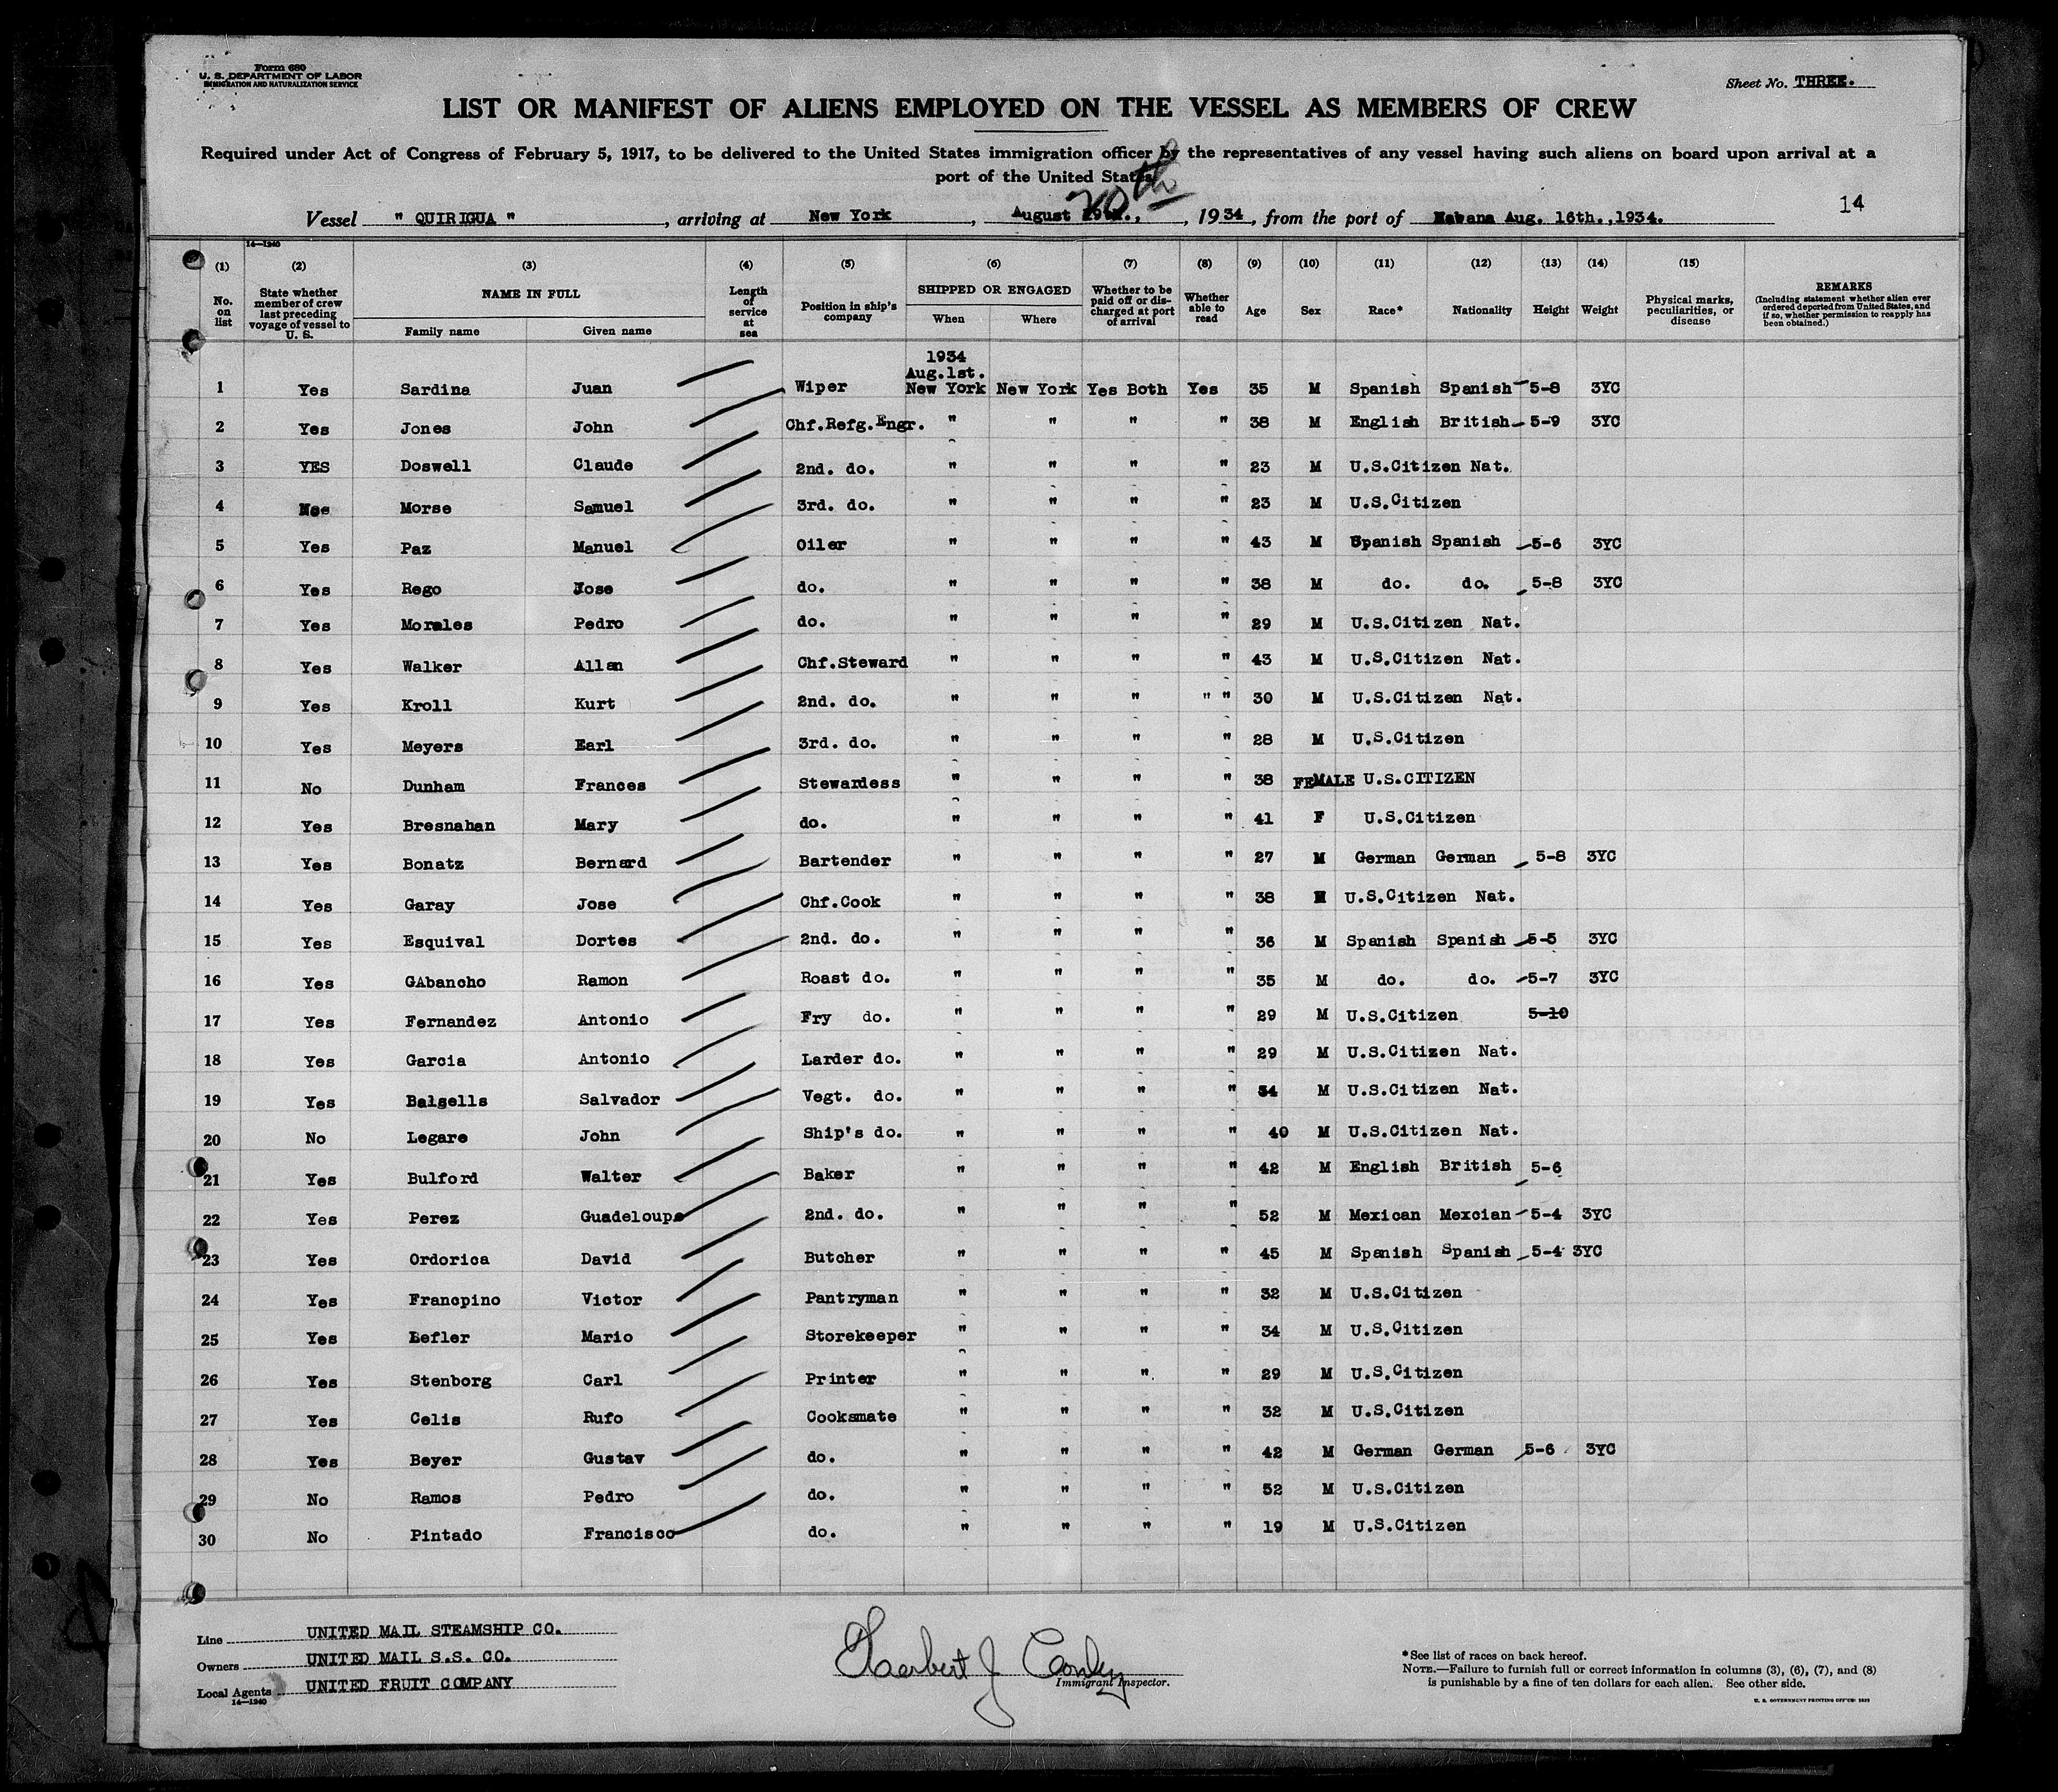 Form 680
U. S. DEPARTMENT OF LABOR
IMMIGRATION AND NATURALIZATION SERVICE
Sheet No. THREE.
LIST OR MANIFEST OF ALIENS EMPLOYED ON THE VESSEL AS MEMBERS OF CREW
Required under Act of Congress of February 5, 1917, to be delivered to the United States immigration officer by the representatives of any vessel having such aliens on board upon arrival at a
port of the United States
20th
Vessel " QUIRIGUA " , arriving at New York , August 19th., , 1934, from the port of Habana Aug. 16th.,1934. 14
14—1240
(1) (2) (3) (4) (5) (6) (7) (8) (9) (10) (11) (12) (13) (14) (15)
No. on list State whether member of crew last preceding voyage of vessel to U. S. NAME IN FULL Family name Given name Length of service at sea Position in ship's company SHIPPED OR ENGAGED When Where Whether to be paid off or discharged at port of arrival Whether able to read Age Sex Race* Nationality Height Weight Physical marks, peculiarities, or disease REMARKS (Including statement whether alien ever ordered deported from United States, and if so, whether permission to reapply has been obtained.)
1934
Aug.1st.
1 Yes Sardina Juan Wiper New York New York Yes Both Yes 35 M Spanish Spanish 5-8 3YC
2 Yes Jones John Chf.Refg.Engr. " " " " 38 M English British 5-9 3YC
3 YES Doswell Claude 2nd. do. " " " " 23 M U.S.Citizen Nat.
4 Morse Samuel 3rd. do. " " " " 23 M U.S.Citizen
5 Yes Paz Manuel Oiler " " " " 43 M Spanish Spanish 5-6 3YC
6 Yes Rego Jose do. " " " " 38 M do. do. 5-8 3YC
7 Yes Morales Pedro do. " " " " 29 M U.S.Citizen Nat.
8 Yes Walker Allan Chf.Steward " " " " 43 M U.S.Citizen Nat.
9 Yes Kroll Kurt 2nd. do. " " " " " 30 M U.S.Citizen Nat.
10 Yes Meyers Earl 3rd. do. " " " " 28 M U.S.Citizen
11 No Dunham Frances Stewardess " " " " 38 FEMALE U.S.CITIZEN
12 Yes Bresnahan Mary do. " " " " 41 F U.S.Citizen
13 Yes Bonatz Bernard Bartender " " " " 27 M German German 5-8 3YC
14 Yes Garay Jose Chf.Cook " " " " 38 M U.S.Citizen Nat.
15 Yes Esquival Dortes 2nd. do. " " " " 36 M Spanish Spanish 5-5 3YC
16 Yes GAbancho Ramon Roast do. " " " " 35 M do. do. 5-7 3YC
17 Yes Fernandez Antonio Fry do. " " " " 29 M U.S.Citizen 5-10
18 Yes Garcia Antonio Larder do. " " " " 29 M U.S.Citizen Nat.
19 Yes Balsells Salvador Vegt. do. " " " " 34 M U.S.Citizen Nat.
20 No Legare John Ship's do. " " " " 40 M U.S.Citizen Nat.
21 Yes Bulford Walter Baker " " " " 42 M English British 5-6
22 Yes Perez Guadeloupe 2nd. do. " " " " 52 M Mexican Mexcian 5-4 3YC
23 Yes Ordorica David Butcher " " " " 45 M Spanish Spanish 5-4 3YC
24 Yes Francpino Victor Pantryman " " " " 32 M U.S.Citizen
25 Yes Lefler Mario Storekeeper " " " " 34 M U.S.Citizen
26 Yes Stenborg Carl Printer " " " " 29 M U.S.Citizen
27 Yes Celis Rufo Cooksmate " " " " 32 M U.S.Citizen
28 Yes Beyer Gustav do. " " " " 42 M German German 5-6 3YC
29 No Ramos Pedro do. " " " " 52 M U.S.Citizen
30 No Pintado Francisco do. " " " " 19 M U.S.Citizen
Line UNITED MAIL STEAMSHIP CO.
Owners UNITED MAIL S.S. CO.
Local Agents UNITED FRUIT COMPANY
14—1240
Herbert J Conley
Immigrant Inspector.
*See list of races on back hereof.
NOTE.—Failure to furnish full or correct information in columns (3), (6), (7), and (8)
is punishable by a fine of ten dollars for each alien. See other side.
U. S. GOVERNMENT PRINTING OFFICE: